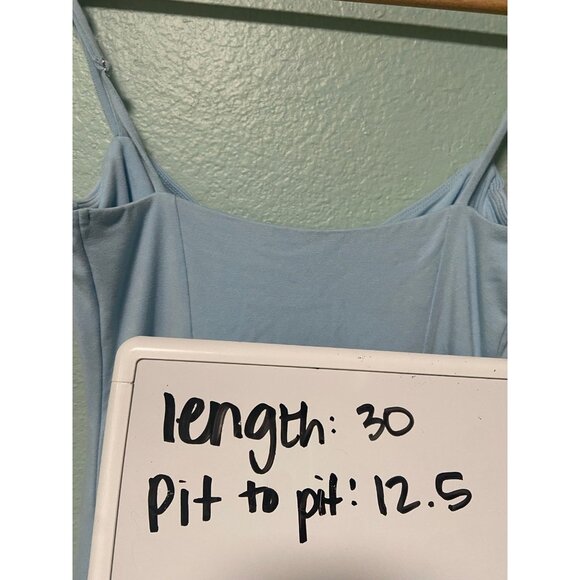 length: 30
Pit to pit: 12.5